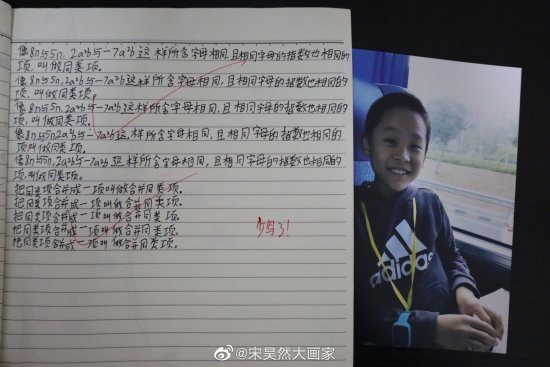 像8n与5n,2a²b与-7a²b这样所含字母相同,且相同字母的指数也相同的
项,叫做同类项。
像8n与5n,2a²b与-7a²b这样所含字母相同,且相同字母的指数也相同的
项,叫做同类项。
像8n与5n,2a²b与-7a²b这样所含字母相同,且相同字母的指数也相同的
项,叫做同类项。
像8n与5n,2a²b与-7a²b这样所含字母相同,且相同字母的指数也相同的
项叫做同类项。
像8n与5n,2a²b与-7a²b这样所含字母相同,且相同字母的指数也相同的
项,叫做同类项。
把同类项合并成一项叫做合并同类项。
把同类项合并成一项叫做合并同类项。
把同类项合并成一项叫做合并同类项。
把同类项合并成一项叫做合并同类项。
把同类项合并成一项叫做合并同类项。
少写了!
adidas
@宋昊然大画家